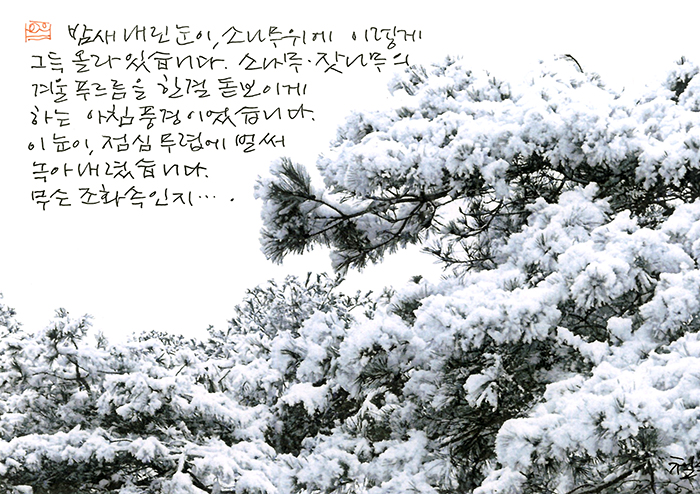 밤새 내린 눈이, 소나무위에 이렇게
그득 올라 있습니다. 소나무·잣나무의
겨울 푸르름을 한결 돋보이게
하는 아침 풍경이었습니다.
이 눈이, 점심 무렵에 벌써
녹아내렸습니다.
무슨 조화속인지··· .